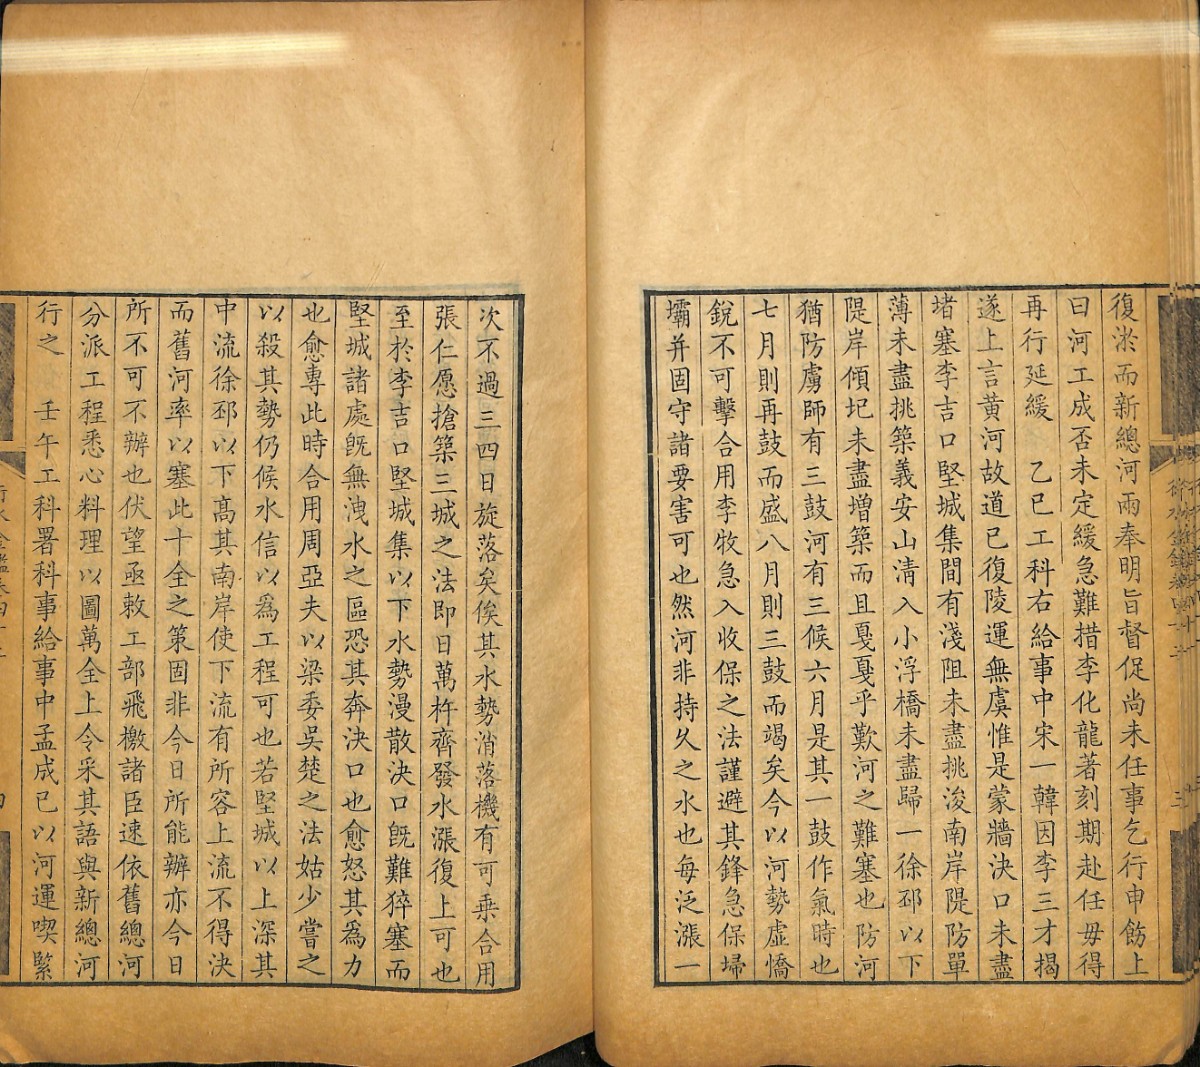 復淤而新總河雨奉明旨督促尚未任事乞行申飭上
曰河工成否未定緩急難措李化龍著刻期赴任毋得
再行延緩　乙巳工科右給事中宋一韓因李三才揭
遂上言黄河故道已復陵運無虞惟是蒙牆決口未盡
堵塞李吉口堅城集間有淺阻未盡挑浚南岸隄防單
薄未盡挑築義安山淸入小浮橋未盡歸一徐邳以下
隄岸傾圮未盡增築而且戞戞乎歎河之難塞也防河
猶防虜師有三鼓河有三候六月是其一鼓作氣時也
七月則再鼓而盛八月則三鼓而竭矣今以河勢虛憍
銳不可擊合用李牧急入收保之法謹避其鋒急保埽
壩并固守諸要害可也然河非持久之水也每泛漲一
次不過三四日旋落矣俟其水勢消落機有可乗合用
張仁愿搶築三城之法即日萬杵齊發水漲復上可也
至於李吉口堅城集以下水勢漫散決口旣難猝塞而
堅城諸處旣無洩水之區恐其奔決口也愈怒其爲力
也愈專此時合用周亞夫以梁委吳楚之法姑少嘗之
以殺其勢仍候水信以爲工程可也若堅城以上深其
中流徐邳以下髙其南岸使下流有所容上流不得決
而舊河率以塞此十全之策固非今日所能辦亦今日
所不可不辦也伏望亟敕工部飛檄諸臣速依舊總河
分派工程悉心料理以圖萬全上令采其語與新總河
行之　壬午工科署科事給事中孟成已以河運喫緊